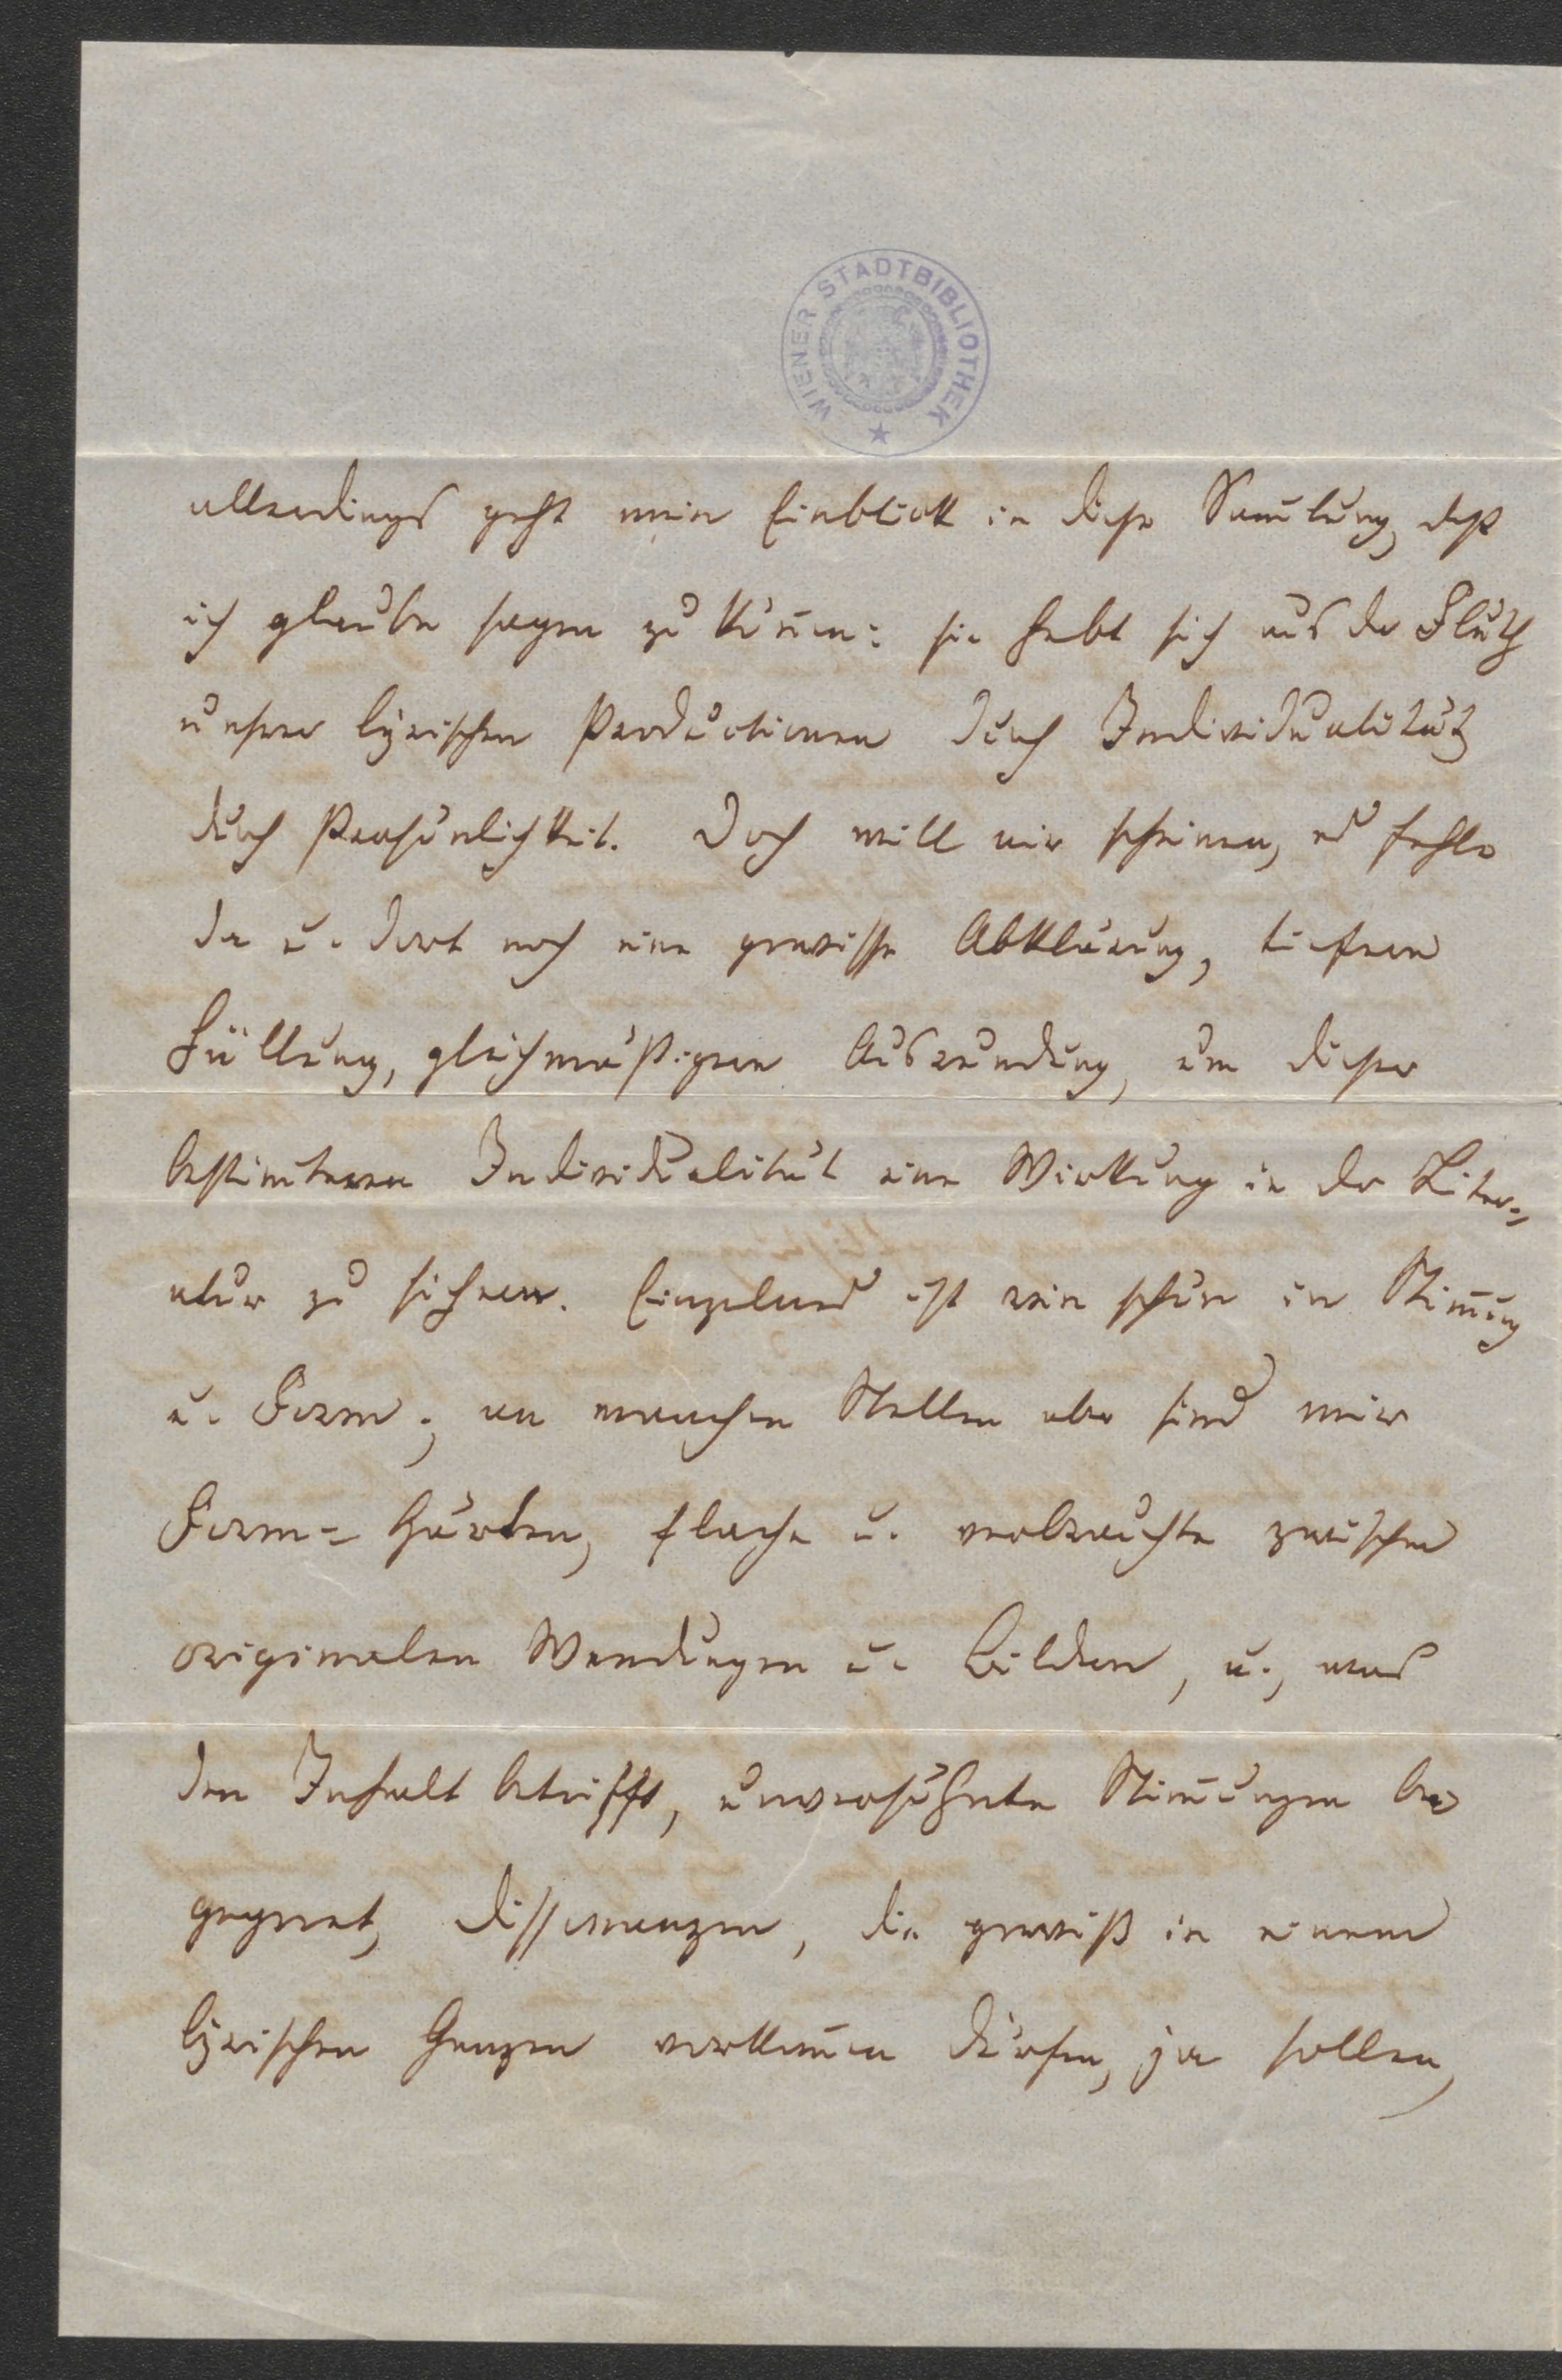 WIENER STADTBIBLIOTHEK
allerdings geht mein Einblick in diese Sam̅lung, daß
ich glaube sagen zu kön̅en: sie hebt sich aus der Fluth
unserer lyrischen Productionen durch Individualität,
durch Persönlichkeit. Doch will mir scheinen, es fehle
da u. dort noch eine gewisse Abklärung, tiefere
Füllung, gleichmäßigere Ausrundung, um dieser
bestim̅teren Individualität eine Wirkung in der Liter=
atur zu sichern. Einzelnes ist rein schön in Stim̅ung
u. Form; an manchen Stellen aber sind mir
Form=Härten, flache u. verbrauchte zwischen
originalen Wendungen u. Bildern, u., was
den Inhalt betrifft, unversöhnte Stim̅ungen be
gegnet, Dissonanzen, die gewiß in einem
lyrischen Ganzen vorkom̅en dürfen, ja sollen,